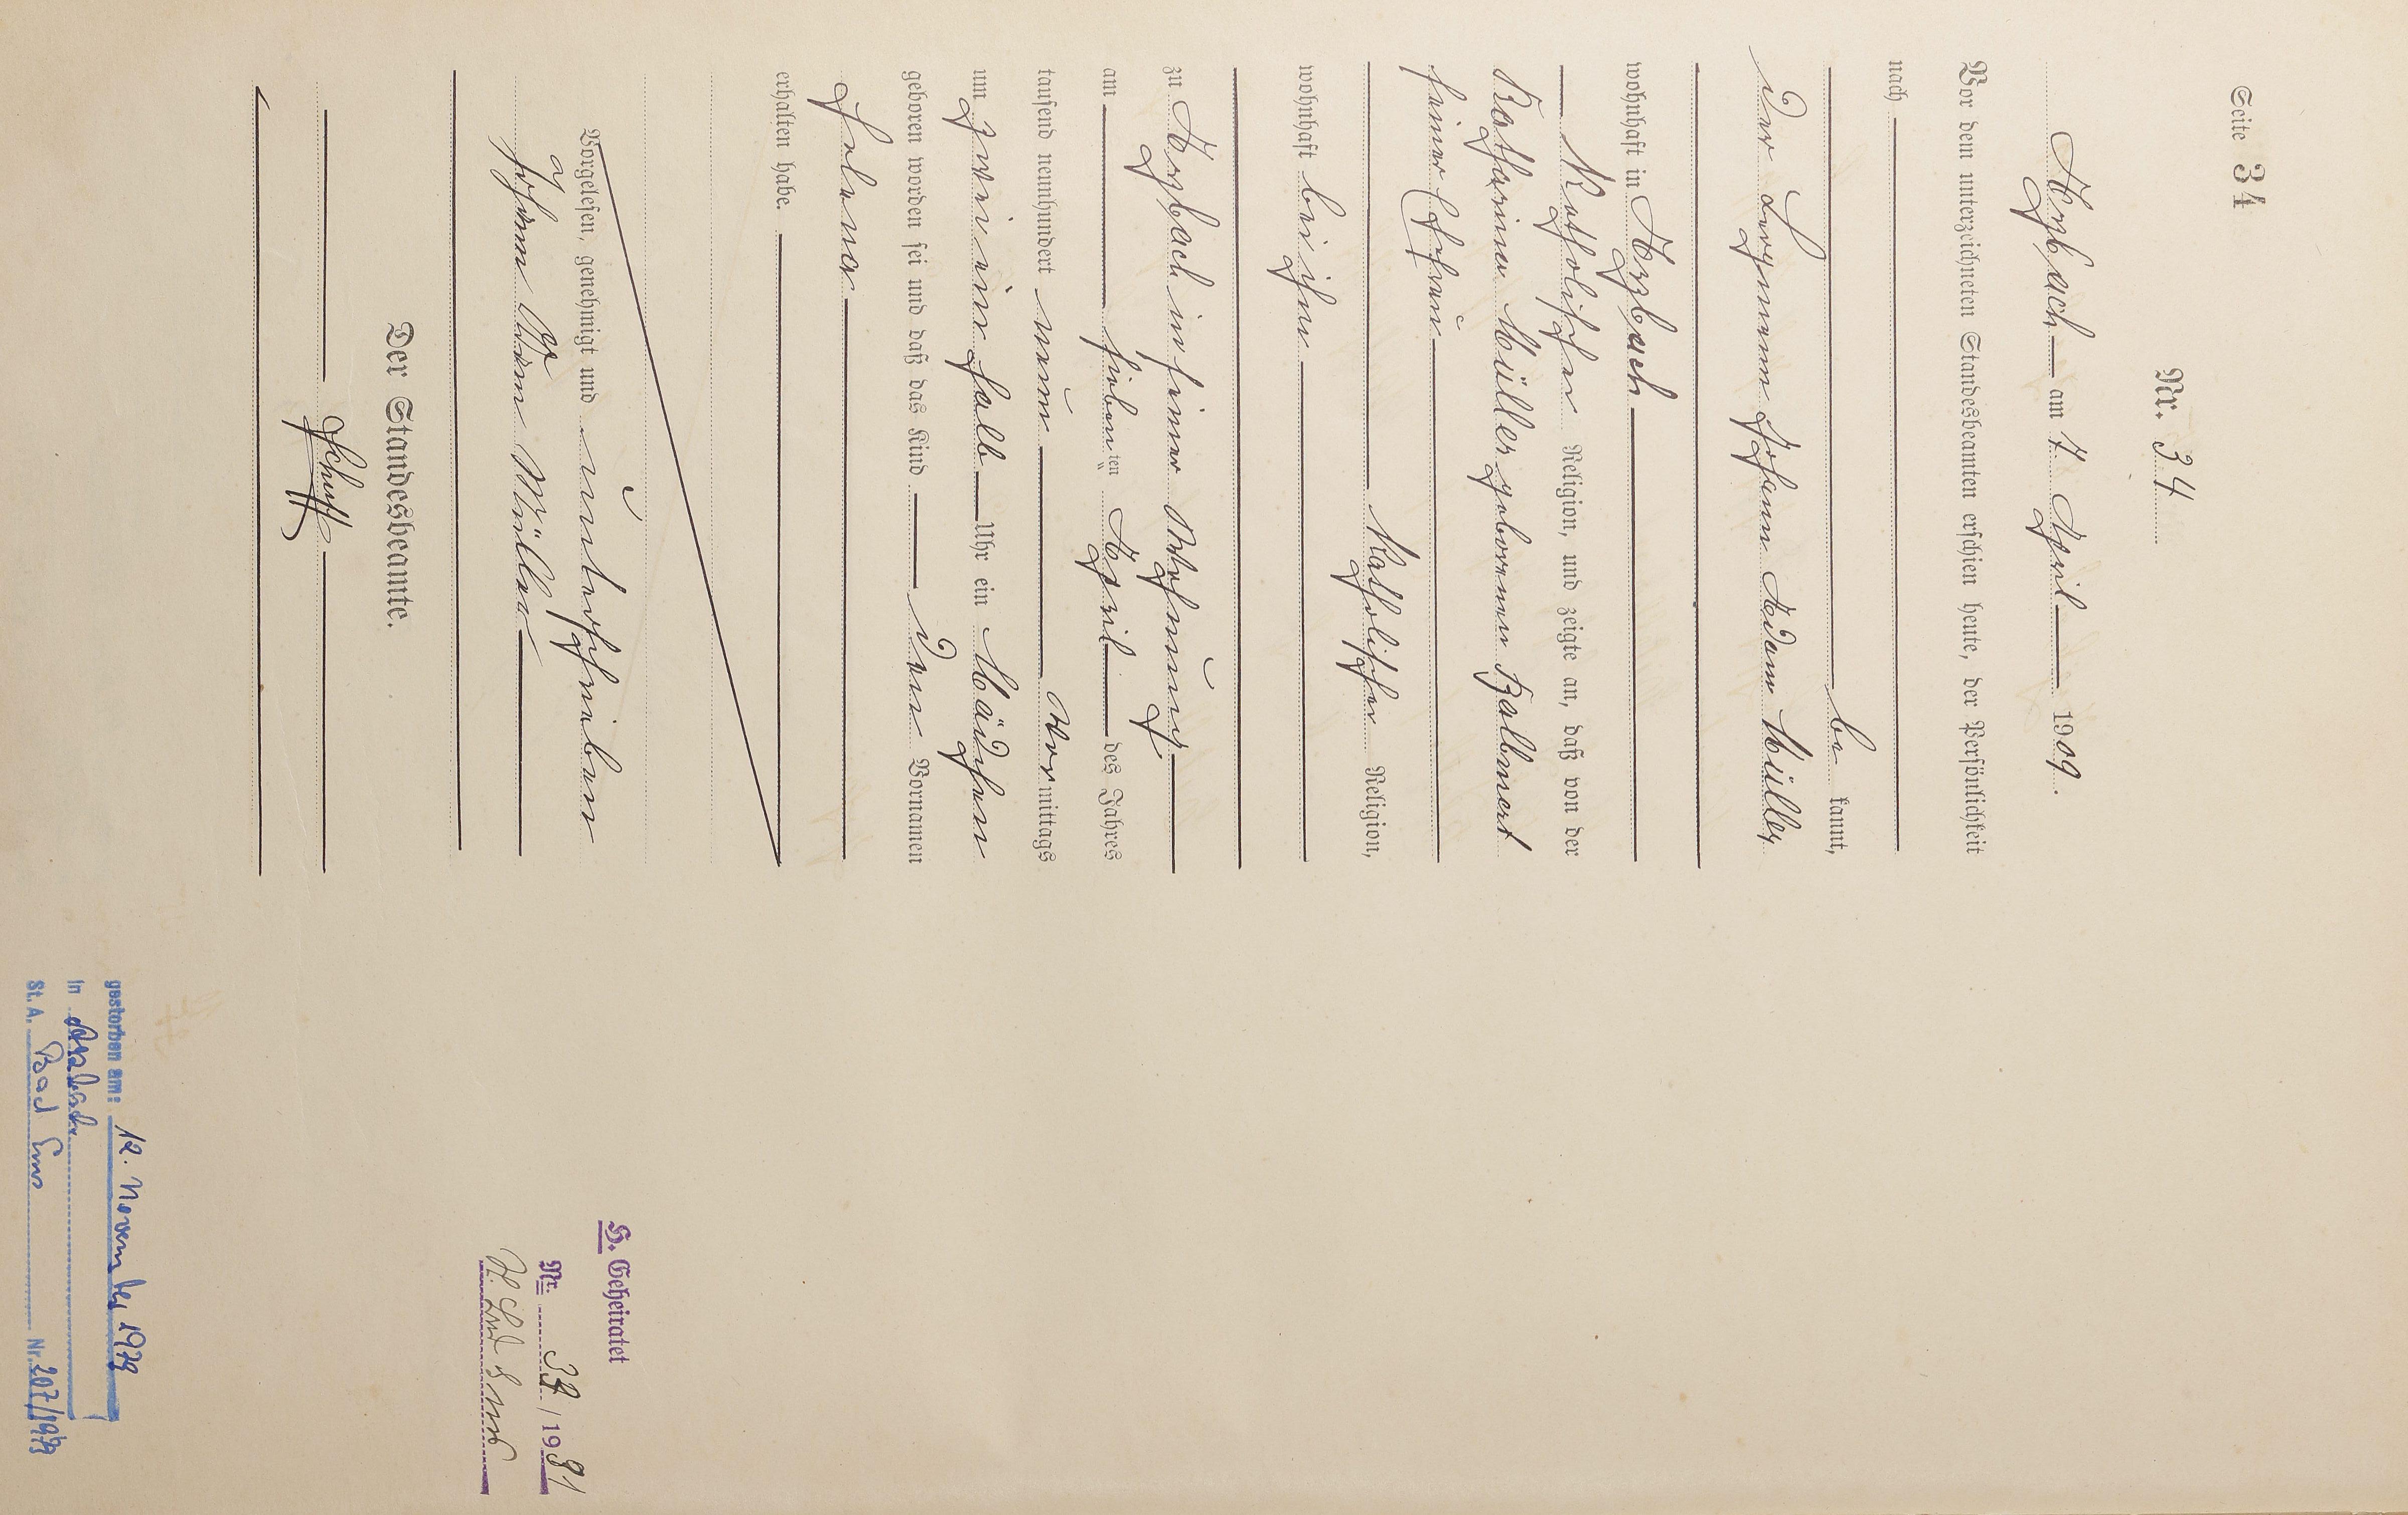 Seite 34
Nr. 34
Arzbach am 7. April 1909.
Vor dem unterzeichneten Standesbeamten erschien heute, der Persönlichkeit
nach
be kannt,
der Bergmann Johann Adam Müller
wohnhaft in Arzbach
Katholischer Religion, und zeigte an, daß von der
Katharina Müller geborenen Halbmert
seiner Ehefrau
Katholischer Religion,
wohnhaft bei ihm
zu Arzbach in seiner Wohnung
am siebenten April des Jahres
tausend neunhundert neun Vormittags
um zwei ein halb Uhr ein Mädchen
geboren worden sei und daß das Kind den Vornamen
Helena
erhalten habe.
Vorgelesen, genehmigt und unterschrieben
Johann Adam Müller
Der Standesbeamte.
H. Geheiratet
Nr. 37/1931
gestorben am: 12. November 1979
in Arzbach
St. A. Bad Ems Nr. 207/1979